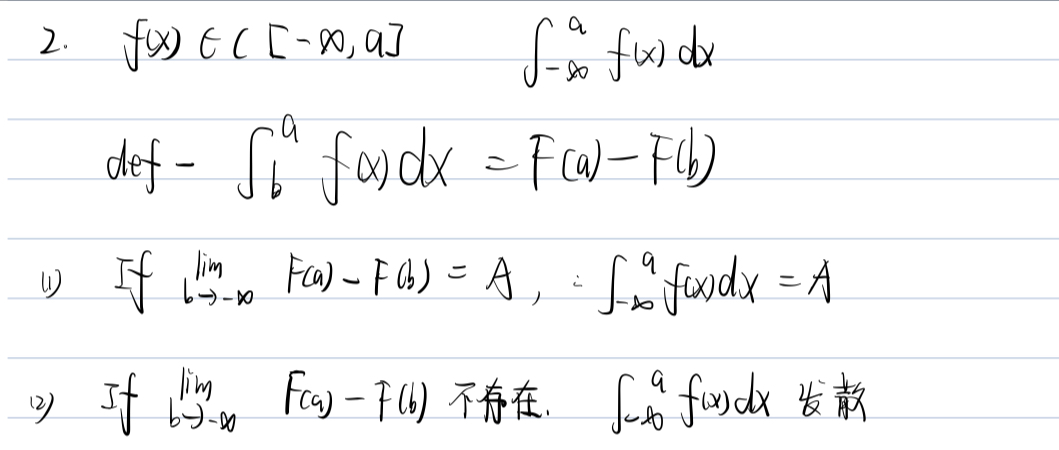 2. f(x) ∈ C [-∞, a] ∫_{-∞}^{a} f(x) dx
def - ∫_{b}^{a} f(x) dx = F(a) - F(b)
(1) If lim_{b→-∞} F(a) - F(b) = A, ∴ ∫_{-∞}^{a} f(x) dx = A
(2) If lim_{b→-∞} F(a) - F(b) 不存在. ∫_{-∞}^{a} f(x) dx 发散